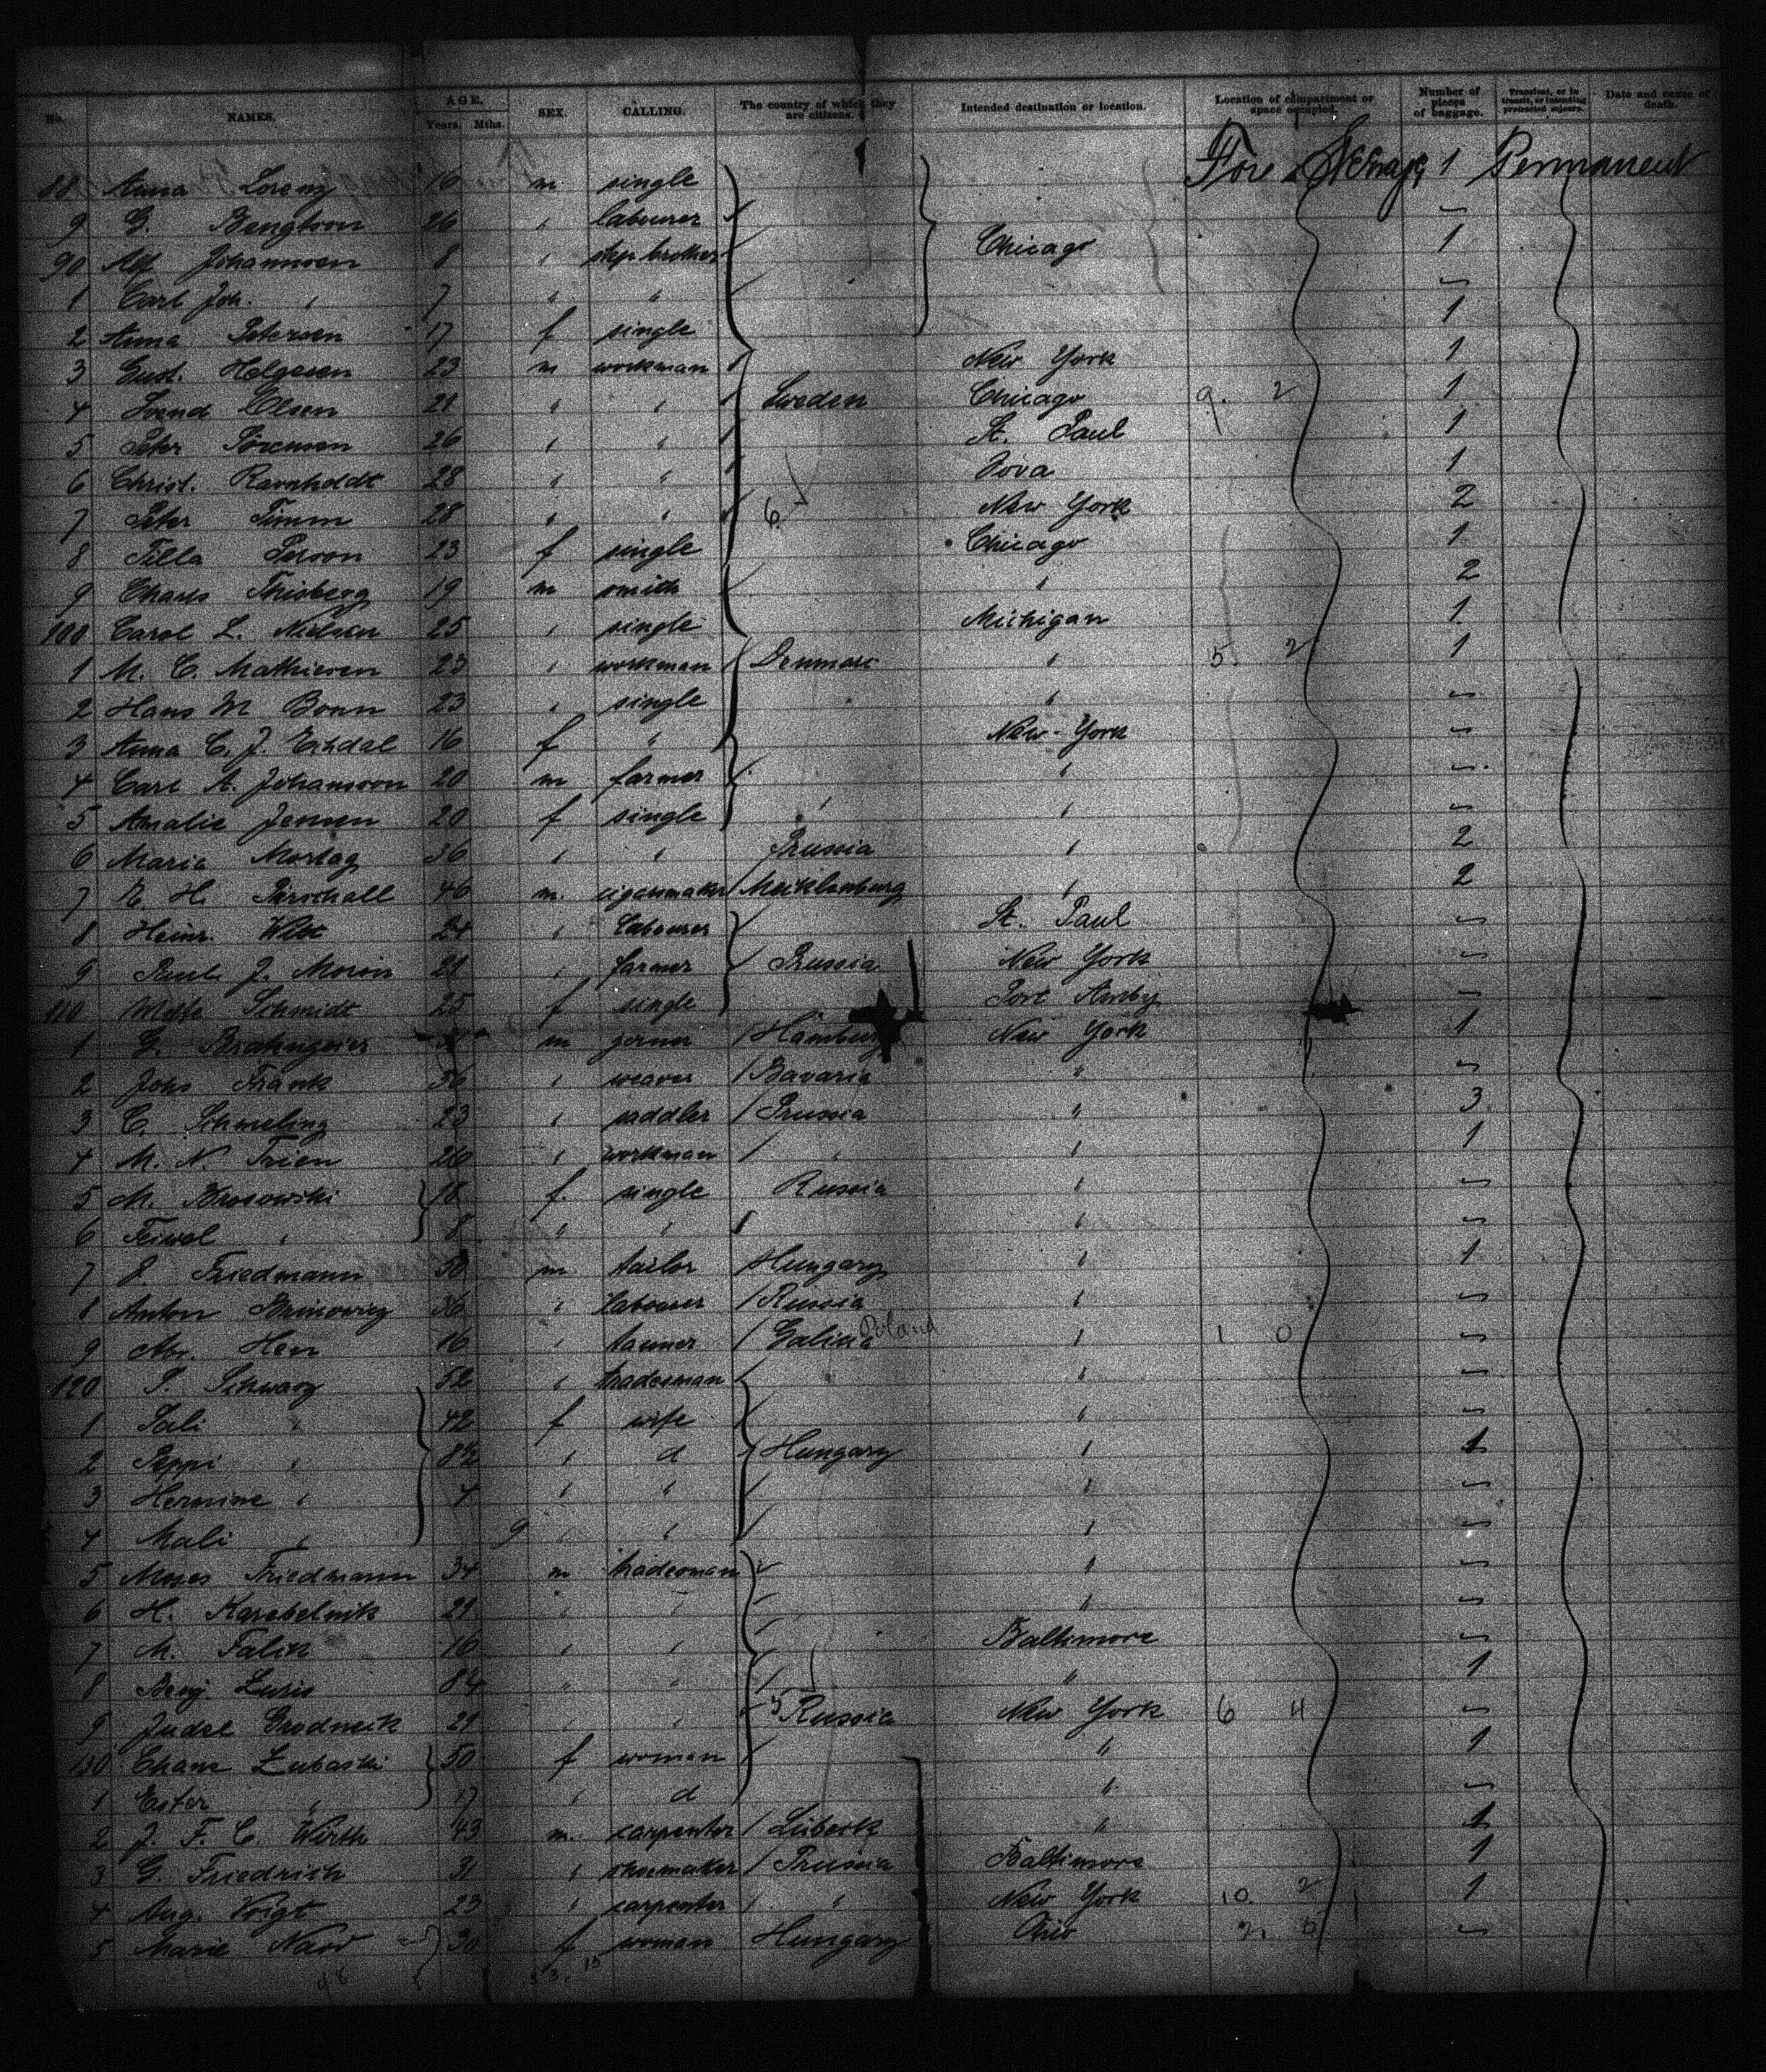 No. NAMES. AGE. Years. Mths. SEX. CALLING. The country of which they are citizens. Intended destination or location. Location of compartment or space occupied. Number of pieces of baggage. Transient, or in transit, or intending protracted sojourn. Date and cause of death.
88 Anna Lorenz 16 m single Fore Steerage 1 Permanent
9 G. Bengtson 26 " labourer
90 Alf Johannsen 8 " step brother Chicago 1
1 Carl Joh. " 7 " "
2 Anna Petersen 17 f single 1
3 Gust. Helgesen 23 m workman New York 1
4 Svend Olsen 21 " " Sweden Chicago 9. 2 1
5 Peter Sörensen 26 " " St. Paul 1
6 Christ. Ravnholdt 28 " " Iova 1
7 Peter Timm 28 " " 6. New York 2
8 Tilla Person 23 f single Chicago 1
9 Charles Thisberg 19 m smith " 2
100 Carol L. Nielsen 25 " single Michigan 1
1 M. C. Mathiesen 23 " workman Denmark " 5. 2 1
2 Hans M Bonn 23 " single "
3 Anna C. J. 16 f " New York
4 Carl A. Johansson 20 m farmer "
5 Amalie Jensen 20 f single " "
6 Maria Mortag 36 " " Prussia " 2
7 H. Parschall 46 m. cigarmaker Mecklenburg " 2
8 Heinr. 24 " labourer St. Paul
9 Paul J. 21 " farmer Prussia New York
110 Schmidt 25 f single Port Amby
1 G. Brahmgeier m Hamburg New York 1
2 Johs Frank 36 " weaver Bavaria "
3 C. Schmeling 23 " saddler Prussia " 3
4 M. N. Trien 26 " workman " " 1
5 M. Brosowski 18 f. single Russia "
6 Feiwel " 8 " " "
7 J. Friedmann 50 m tailor Hungary " 1
8 Anton 36 " labourer Russia "
9 Abr. Hen 16 " tanner Galicia Poland " 1 0
120 P. Schwarz 52 " tradesman "
1 Sali " 42 f wife "
2 Peppi " 8½ " d Hungary " 1
3 Hermine " 4 " " "
4 Mali " 9 " " "
5 Moses Friedmann 34 m tradesman "
6 H. Karabelnik 21 " " "
7 M. Falik 16 " " Baltimore
8 Benj Luris " " " 1
9 Judel Grodneik 21 " " 5 Russia New York 6 4
130 Chane Lubaski 50 f woman " 1
1 Ester " 17 " d "
2 J. F. C. Wirth 43 m. carpenter Lübeck " 1
3 G. Friedrich 31 " shoemaker Prussia Baltimore 1
4 Aug. Voigt 23 " carpenter " New York 10. 2 1
5 Marie 30 f woman Hungary Ohio 2. 5
48 33. 15